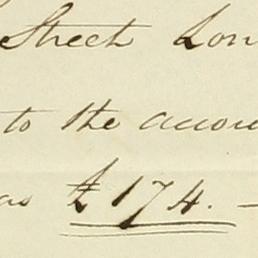 Street Lon
to the accou
as £174. –